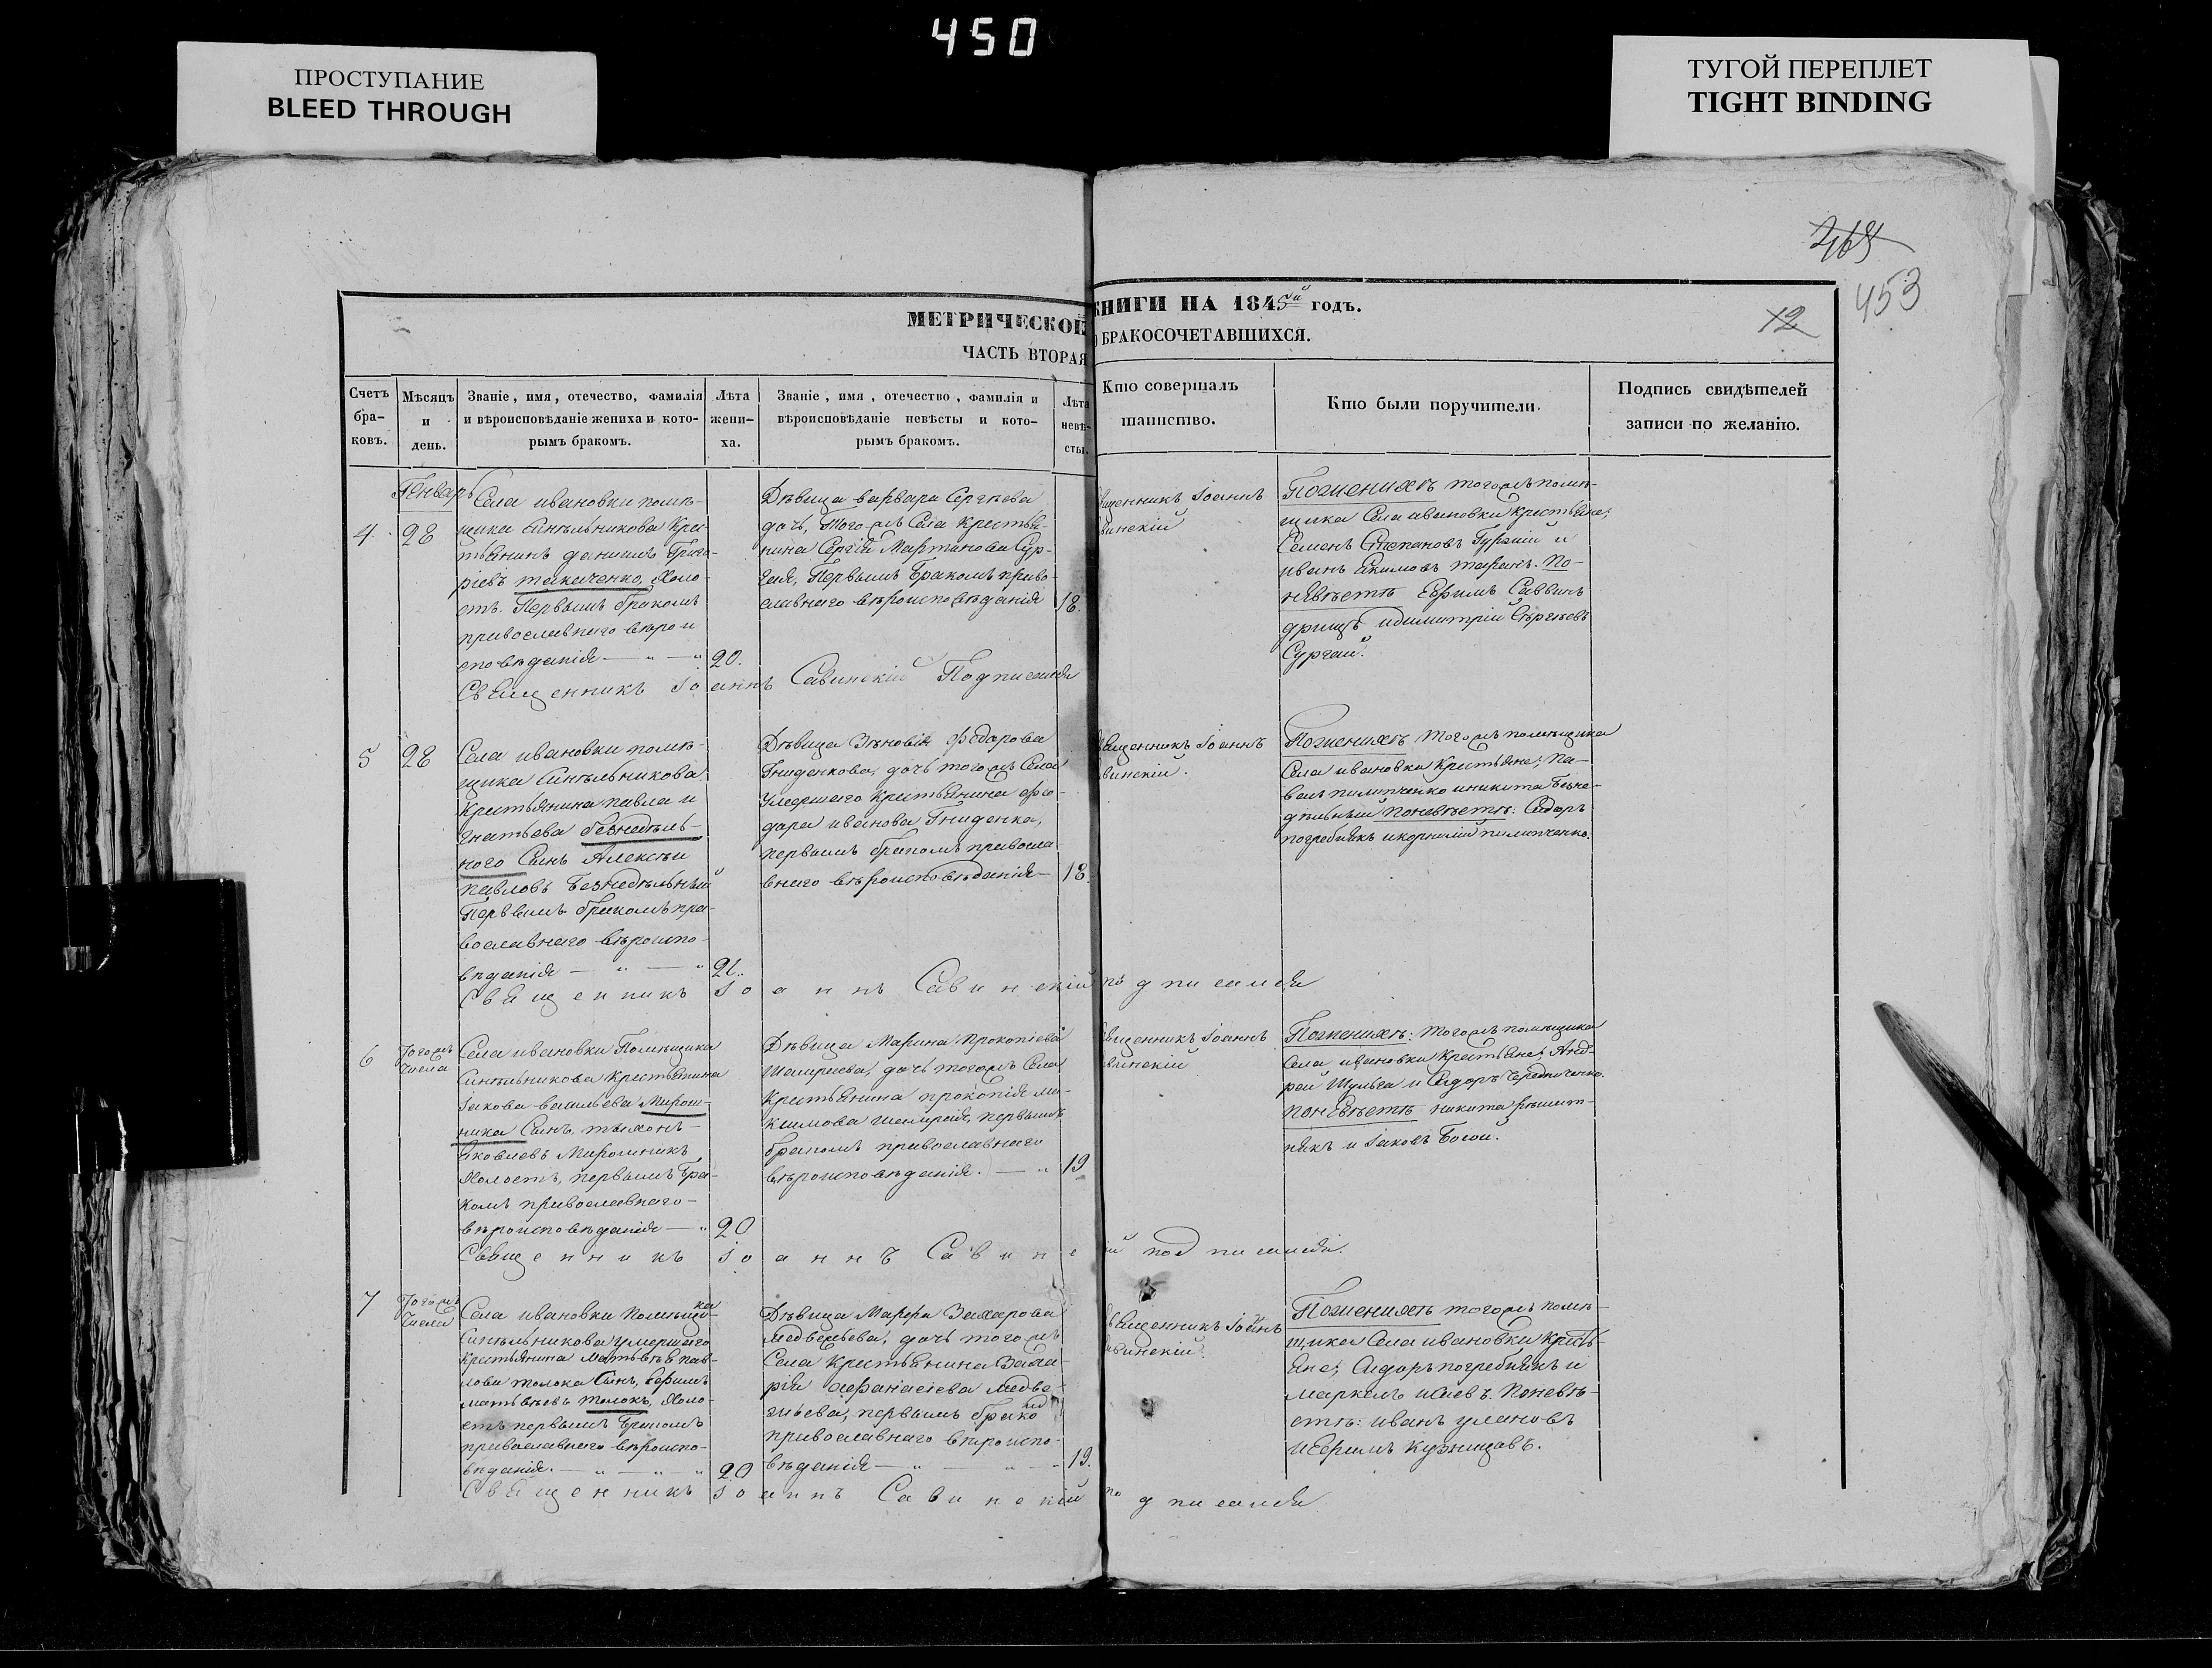 450
ПРОСТУПАНИЕ
BLEED THROUGH
ТУГОЙ ПЕРЕПЛЕТ
TIGHT BINDING
453
12
МЕТРИЧЕСКОЙ КНИГИ НА 1845й годъ.
ЧАСТЬ ВТОРАЯ О БРАКОСОЧЕТАВШИХСЯ.
Счетъ бра-ковъ.
Мѣсяцъ и день.
Званіе, имя, отечество, фамилія
и вѣроисповѣданіе жениха и кото-
рымъ бракомъ.
Лѣта жени-ха.
Званіе, имя, отечество, фамилія и
вѣроисповѣданіе невѣсты и кото-
рымъ бракомъ.
Лѣта невѣ-сты.
Кто совершалъ
таинство.
Кто были поручители.
Подпись свидѣтелей
записи по желанію.
Генварь
4
28
Села ивановки помѣ-
щика Синѣльникова Крес-
тьянинъ даниилъ Григо-
ріевъ ткаченко, Холо-
стъ. Первымъ бракомъ
православнаго вѣрои
сповѣданія
20.
Дѣвица варвара Сергѣева
дочь, Того жъ Села Крестья-
нина Сергія Мартинова Сур-
гая, Первымъ Бракомъ право-
славнаго вѣроисповѣданія
18.
вященникъ Іоаннъ
винскій
Поженихѣ тогожъ помѣ-
щика Села ивановки Крестьяне,
Семенъ Степановъ Гуржій и
иванъ Екимовъ таранъ. По-
невѣстѣ Ефимъ Саввинъ
дрищъ идимитрій Сѣргѣевъ
Сургай.
Священникъ Іоаннъ Савинскій Подписался
5
28
Села ивановки помѣ-
щика Синѣльникова
Крестьянина павла и
гнатьева безнедѣль-
ного Сынъ Алексѣи
павловъ Безнедѣльный
Первымъ бракомъ пра-
вославнаго вѣроиспо-
вѣданія
21.
Дѣвица Зѣновія Федорова
Гниденкова, дочь тогожъ Села
Умершего Крестьянина Фео-
дора иванова Гниденка,
первымъ бракомъ правосла
внаго вѣроисповѣданія
18.
вященникъ Іоаннъ
винскій.
Поженихѣ тогожъ помѣщика
Села ивановки Крестьяне; Па-
велъ пилипченко иникита Безне-
дѣльный поневѣстѣ: Сидоръ
погребнякъ икорнилій пилипченко.
Священникъ Іоаннъ Савинскій подписался
6
Тогожъ
числа
Села ивановки Помѣщика
Синѣльникова Крестьянина
Іакова васильева Мирош-
ника Сынъ, тихонъ
Яковлевъ Мирошникъ
Холостъ, первымъ Бра-
комъ православнаго
вѣроисповѣданія
20
Дѣвица Марина Прокопіева
дочь тогожъ Села
Крестьянина прокопія ма-
ксимова первымъ
бракомъ православнаго
вѣроисповѣданія.
19
вященникъ Іоаннъ
винскій
Поженихѣ: тогожъ помѣщика
Села ивановки Крестьяне; Анд-
рей Шульга и Сидоръ Чередниченко.
поневѣстѣ никита рѣшит-
някъ и Іаковъ Босой.
Священникъ Іоаннъ Савинскій подписался.
7
Тогожъ
числа
Села ивановки Помѣщика
Синѣльникова умершего
Крестьянина Матьвѣя пав-
лова толока Сынъ, Ефимъ
матьвѣевъ Толокъ, Холо-
стъ первымъ Бракомъ
православнаго вѣроиспо-
вѣданія.
20
Дѣвица Марфа Захарова
Медвѣдьева, дочь тогожъ
Села Крестьянина Заха-
рія афанасіева Медве-
дьева, первымъ бракомъ
православнаго вѣроиспо-
вѣданія
19.
вященникъ Іоаннъ
винскій.
Поженихѣ тогожъ помѣ-
щика Села ивановки Кресть-
яне; Сидоръ погребнякъ и
маркелъ исаевъ. Поневѣ-
стѣ: иванъ улановъ
иЕфимъ Кузницовъ.
Священникъ Іоаннъ Савинскій подписался